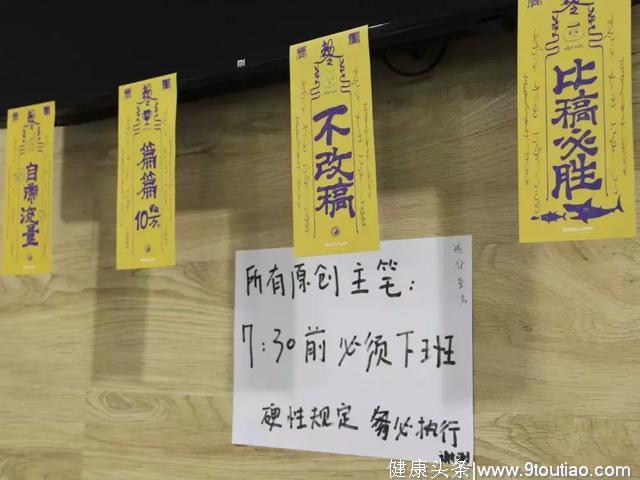 自带流量
篇篇
10w+
不改稿
比稿必胜
所有原创主笔:
7:30前必须下班
硬性规定 务必执行
谢谢
健康头条/www.9toutiao.com